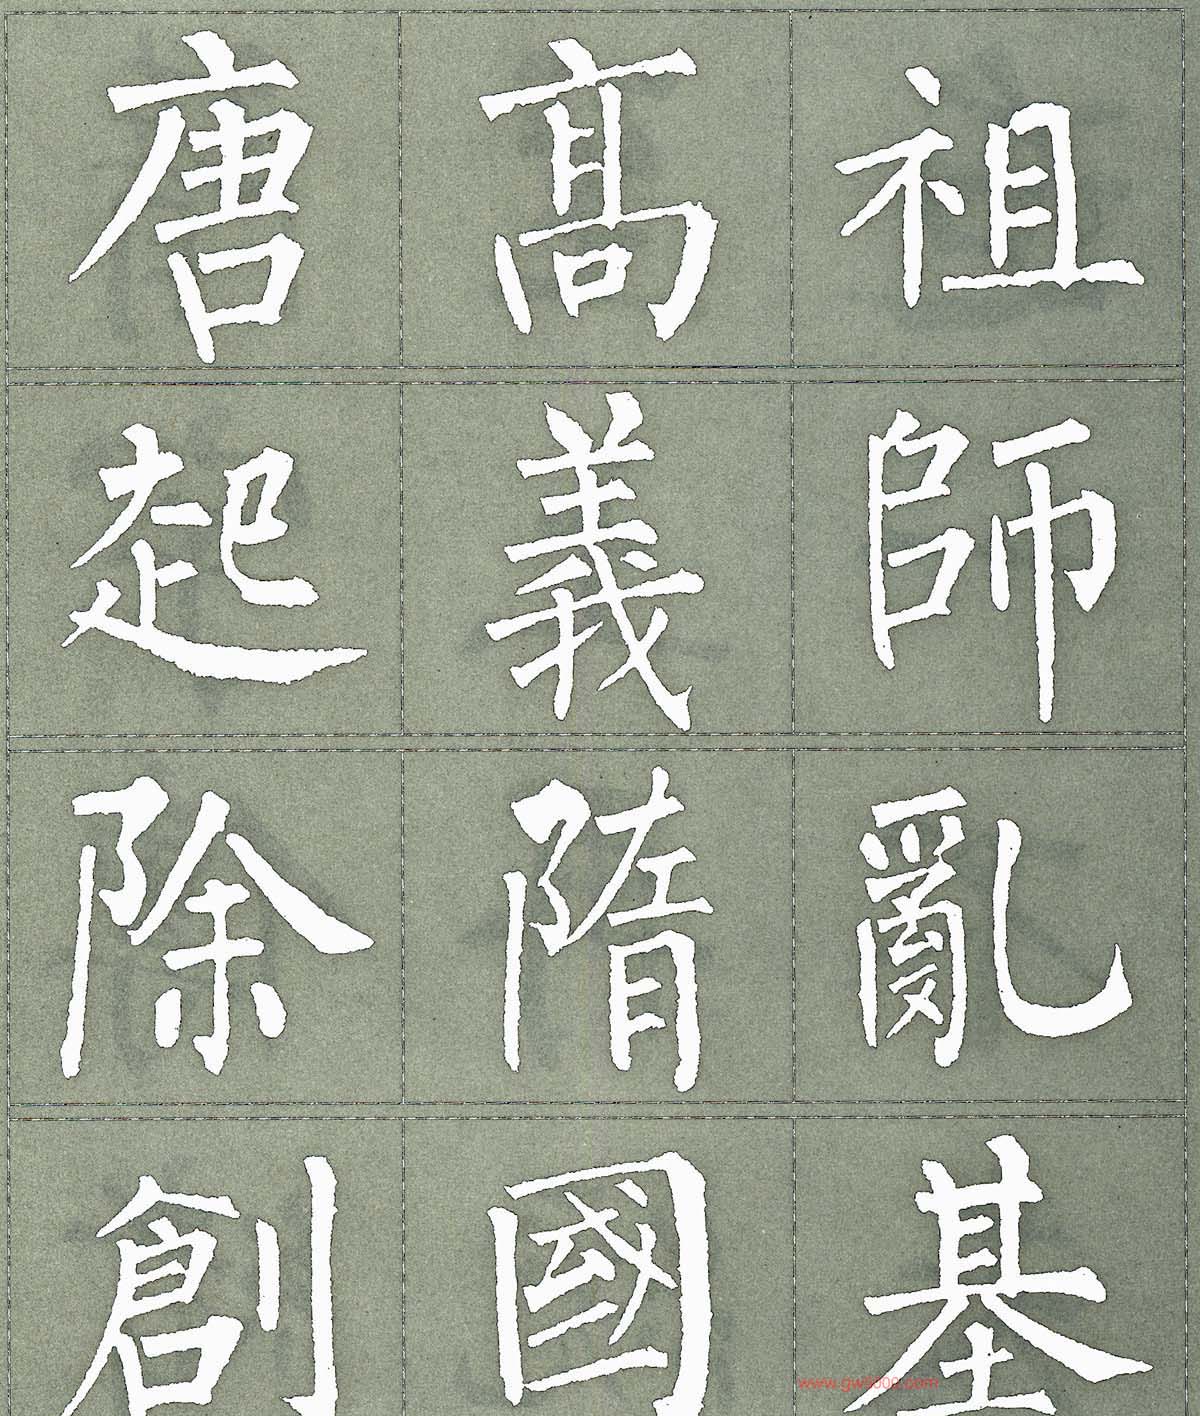 唐髙祖
起義師
除隋亂
創國基
www.gw8000.com